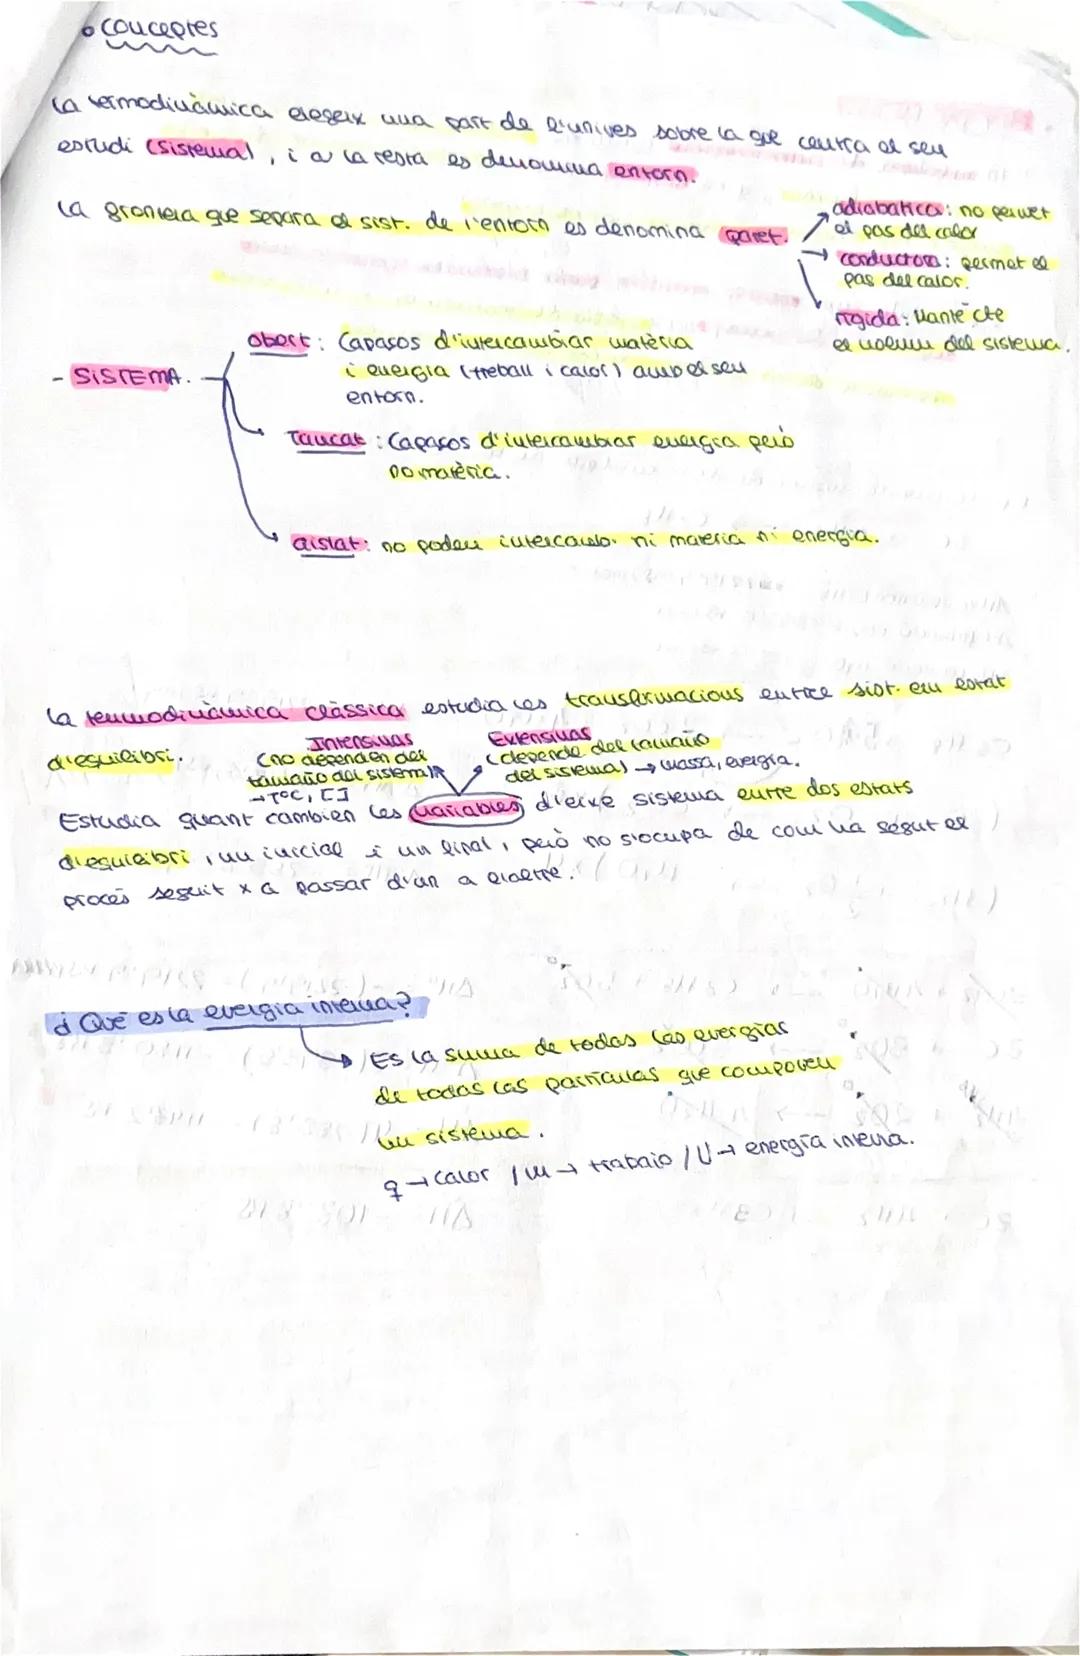 • Conceptes
La termodinàmica elegeix una part de l'univers sobre la que centra el seu
estudi (sistema), i a la resta es denomina entorn.
La frontera que separa el sist. de l'entorn es denomina paret.
adiabatica: no permet
el pas del calor
conductora: permet el
pas del calor.
rígida: Manté cte
el volum del sistema.
- SISTEMA.
obert: Capasos d'intercambiar matèria
i energia (treball i calor) amb el seu
entorn.
Tancat: Capasos d'intercambiar energia però
no matèria.
aïslat: no poden intercamb. ni materia ni energia.
La termodinàmica clàssica estudia les transformacions entre sist. en estat
d'equilibri.
Intensivas
(no dependen del
tamaño del sistema)
→ TºC, [ ]
Extensivas
(depende del tamaño
del sistema) → massa, energia.
Estudia quant cambien les variables d'eixe sistema entre dos estats
d'equilibri, un inicial i un final, però no s'ocupa de com ha segut el
procés seguit x a passar d'un a l'altre.
¿Qué es la energia interna?
Es la suma de todas las energías
de todas las partículas que componen
un sistema.
q → calor / w → trabajo / U → energía interna.